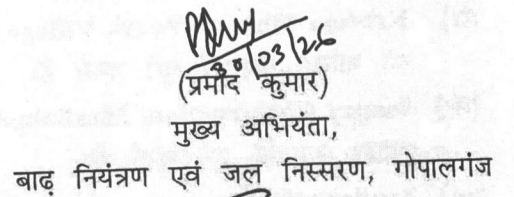 30/03/26
(प्रमोद कुमार)
मुख्य अभियंता,
बाढ़ नियंत्रण एवं जल निस्सरण, गोपालगंज